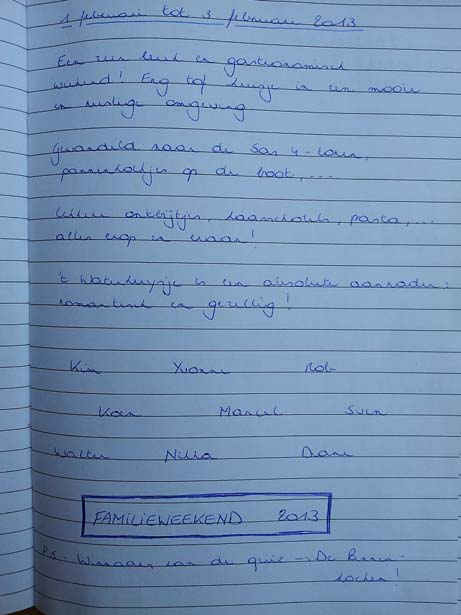 1 februari tot 3 februari 2013
Een zeer leuk en gastronomisch
weekend! Erg tof huisje in een mooie
en rustige omgeving
Gewandeld naar de Sas 4-toren,
pannenkoekjes op de boot, ...
Lekkere ontbijtjes, kaasschotels, pasta, ...
alles erop en eraan!
't Waterhuysje is een absolute aanrader:
romantisch en gezellig!
Kim Yvonne Rob
Koen Marcel Sven
Walter Nikka Diane
FAMILIEWEEKEND 2013
P.S. - Winnaars van de quiz → De